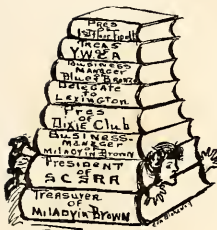 PRES
of
TREAS
of
Y.W.C.A
BUSINESS
MANAGER
Blue & Bronze
DELEGATE
to
Lexington
PRES
of
Dixie Club
BUSINESS-
MANAGER
of
MILADY in BROWN
PRESIDENT
of
SCSRA
TREASURER
of
MILADY in BROWN